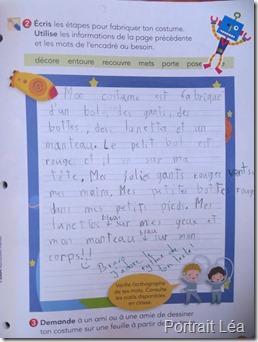 2 Écris les étapes pour fabriquer ton costume.
Utilise les informations de la page précédente
et les mots de l'encadré au besoin.
décore entoure recouvre mets porte pose
Mon costume est fabriqué
d'un bot, des gants, des
bottes, des lunettes et un
manteau. Le petit bot est
rouge et il va sur ma
tête. Mes jolies gants rouges vont sur
mes mains. Mes petites bottes rouge
dans mes petits pieds. Mes
lunettes sur mes yeux et
mon manteau sur mon
corps!!
Bravo
J'adore le
de
ton texte!
Vérifie l'orthographe
de tes mots. Consulte
les outils disponibles
en classe.
3 Demande à un ami ou à une amie de dessiner
ton costume sur une feuille à partir de
Portrait Léa